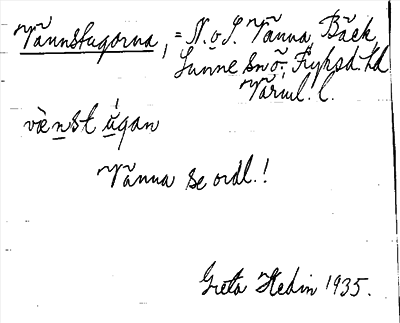 Vännstugorna, = N. o S. Vänna, Bäck
Sunne sn o., Fryksd. hd
Värml. l.
vænst ùgan
Vänna se ordl.!
Greta Hedin 1935.